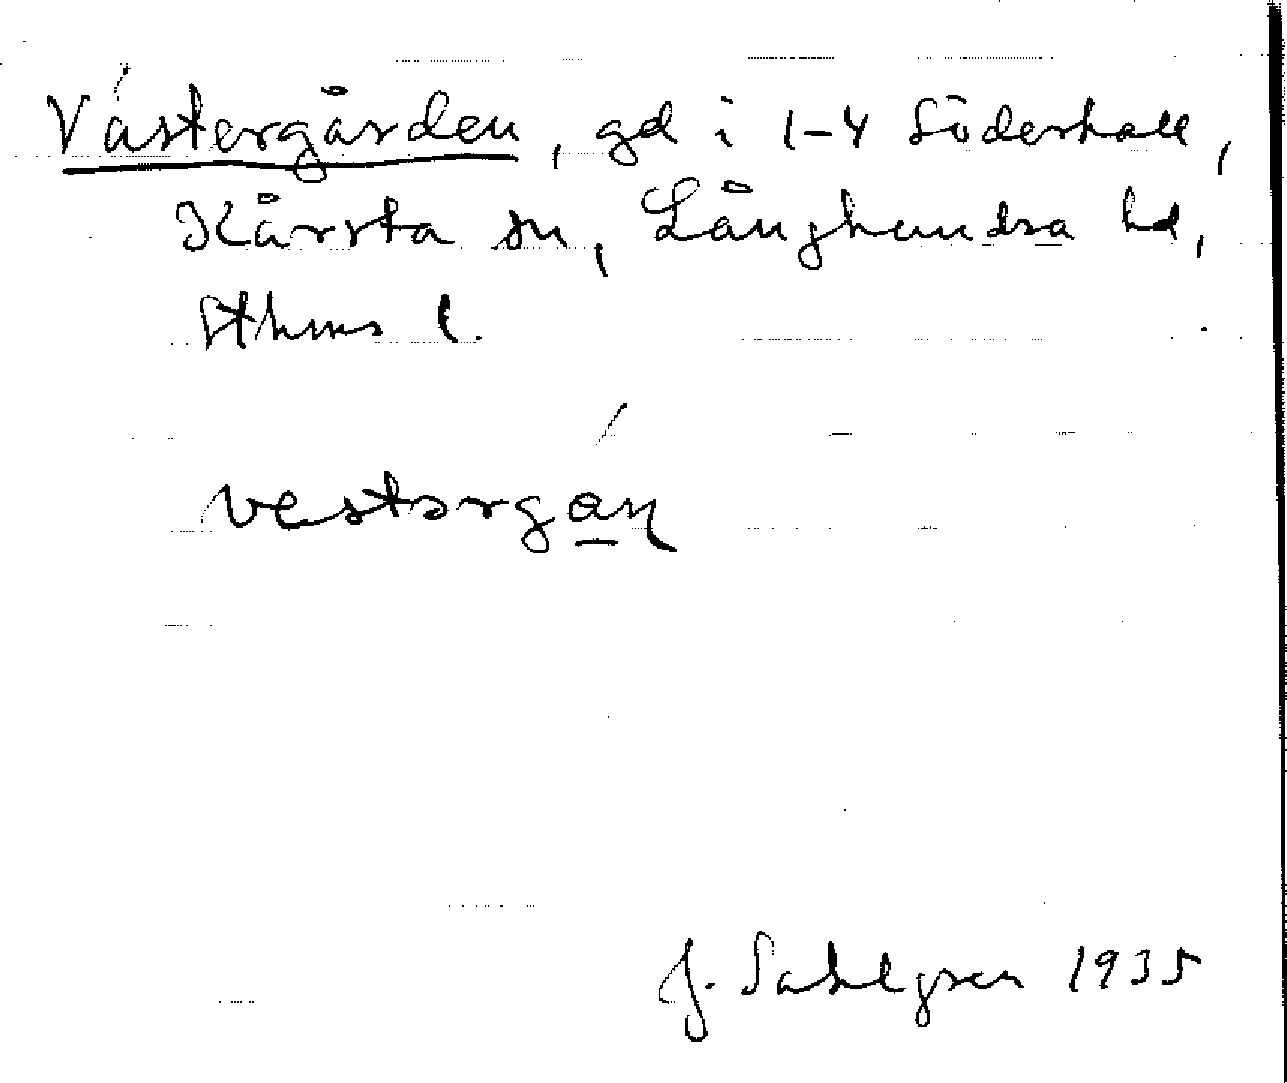 Västergården, gd i 1-4 Söderhall,
Kårsta sn, Långhundra hd,
Sthms l.
vestərgán
J. Sahlgren 1935